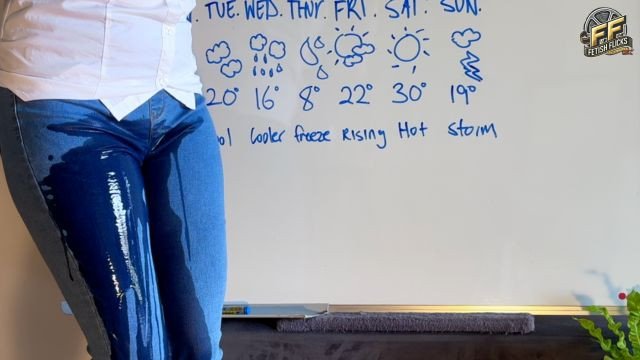 TUE. WED. THUR. FRI. SAT. SUN.
20° 16° 8° 22° 30° 19°
Cooler freeze Rising Hot Storm
FF
FETISH FLICKS